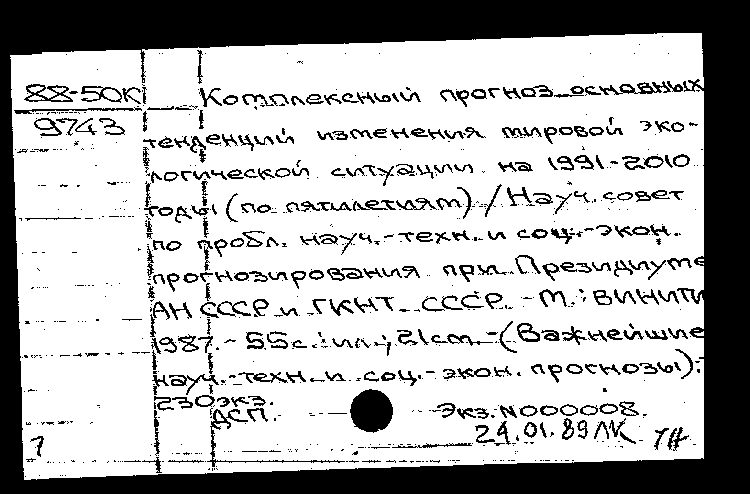 88-50К Комплексный прогноз основных
9743 тенденций изменения мировой эко-
логической ситуации на 1991-2010
годы (по пятилетиям) / Науч. совет
по пробл. науч.-техн. и соц.-экон.
прогнозирования при Президиуме
АН СССР и ГКНТ СССР. - М.: ВИНИТИ
1987. - 55с.: ил.; 21см. - (Важнейшие
науч.-техн. и соц.-экон. прогнозы).
230экз.
ДСП. Экз. N000008.
24.01.89ЛК
1